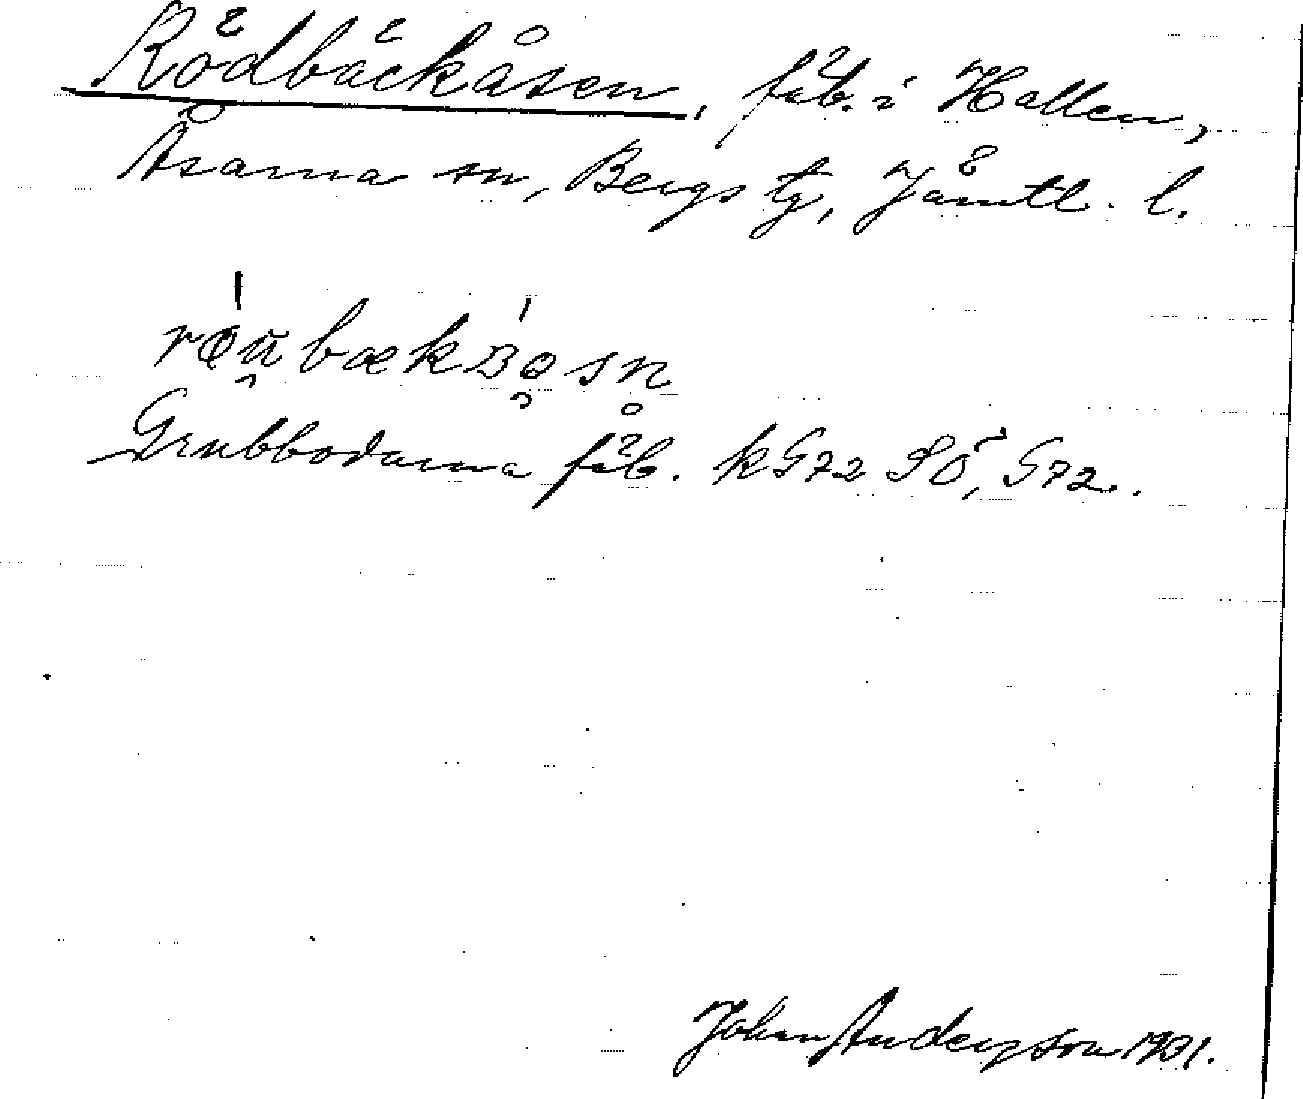 Rödbäckåsen, fäb. i Hallen,
Åsarna sn, Bergs tg, Jämtl. l.
Grubbodarna fäb. k G72 SÖ, G72.
Johan Anderson 1931.